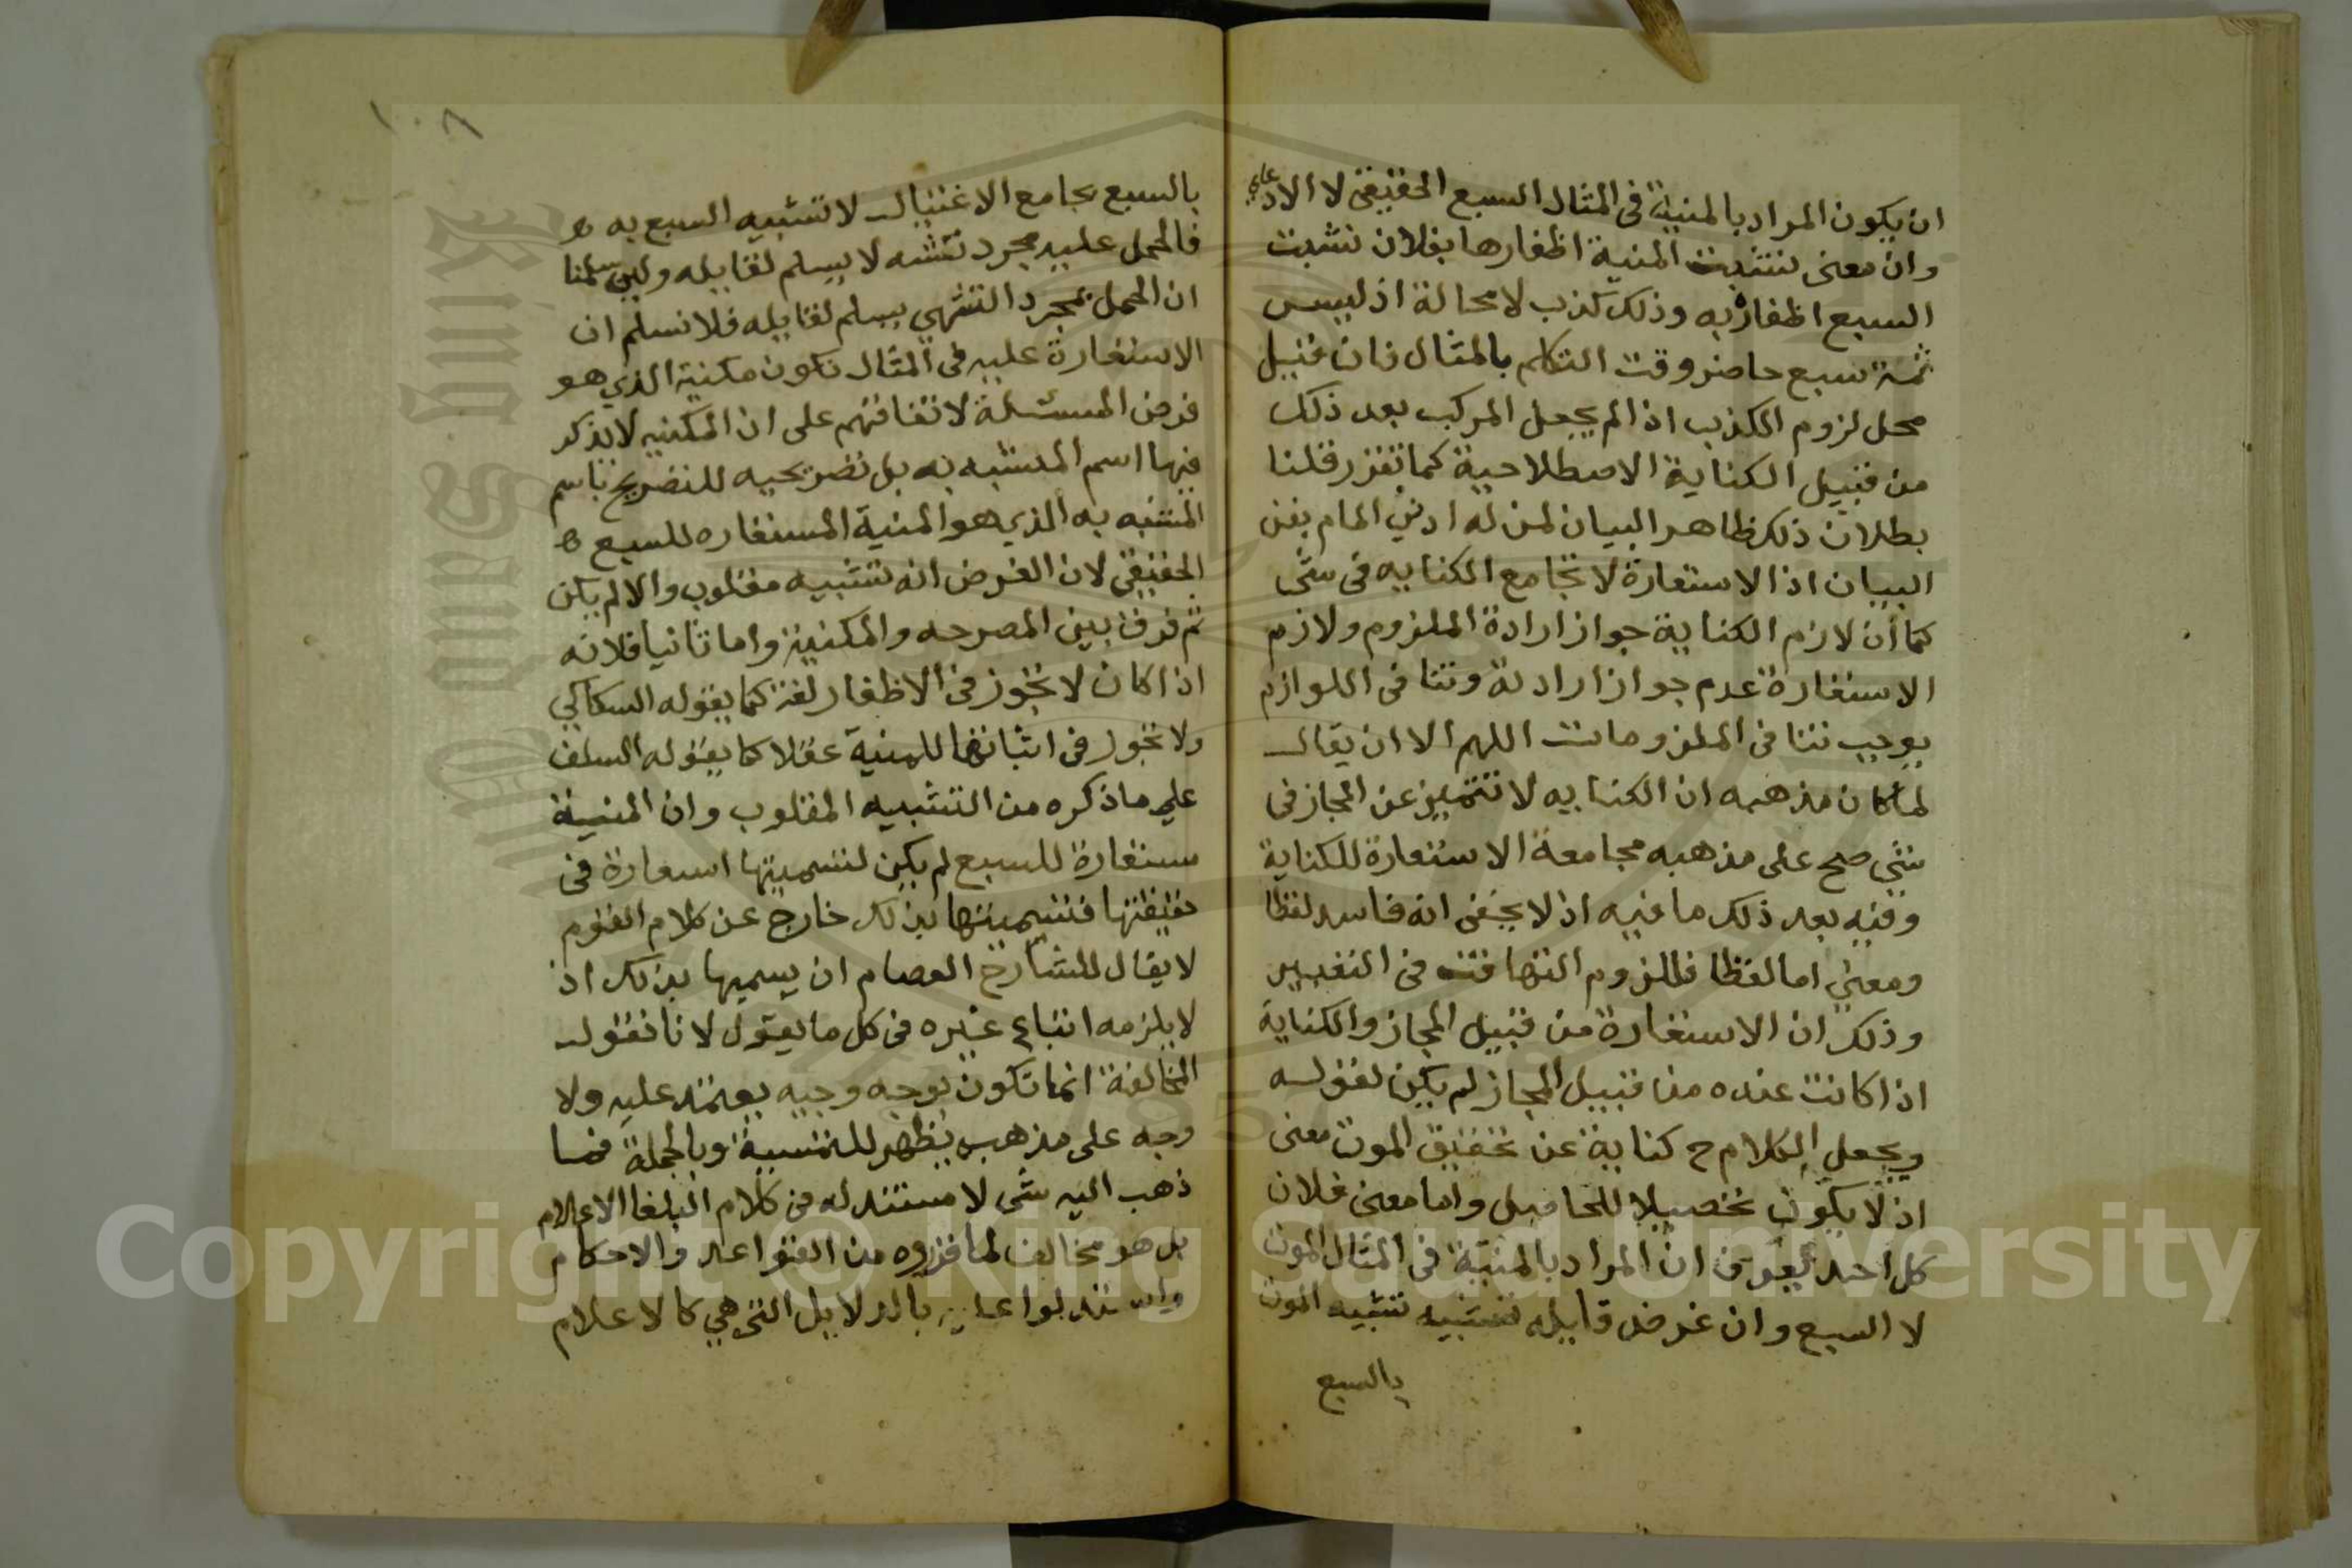 ان يكون المراد بالمنية فى المثال السبع الحقيقى لا الادعاي
وان معنى نشبت المنية اظفارها بفلان نشبت
السبع اظفاره به وذلك كذب لا محالة اذ ليس
ثمة سبع حاضر وقت التكلم بالمثال فان قيل
محل لزوم الكذب اذا لم يجعل المركب بعد ذلك
من قبيل الكناية الاصطلاحية كما تقرر قلنا
بطلان ذلك ظاهر البيان لمن له ادنى المام بفن
البيان اذ الاستعارة لا تجامع الكنايه فى شى
كما ان لازم الكناية جواز ارادة الملزوم ولازم
الاستعارة عدم جواز ارادته وتنافى اللوازم
يوجب تنافى الملزومات اللهم الا ان يقال
لما كان مذهبه ان الكنايه لا تتميز عن المجاز فى
شى صح على مذهبه مجامعة الاستعارة للكناية
وفيه بعد ذلك ما فيه اذ لا يخفى انه فاسد لفظا
ومعنى اما لفظا فللزوم التهافت فى التعبير
وذلك ان الاستعارة من قبيل المجاز والكناية
اذا كانت عنده من قبيل المجاز لم يكن لقوله
ويجعل الكلام ح كناية عن تحقيق الموت معنى
اذ لا يكون تحصيلا للحاصل واما معنى فلان
كل احد يعرف ان المراد بالمنية فى المثال الموت
لا السبع وان غرض قايله تشبيه الموت
بالسبع
١٠٨
بالسبع بجامع الاغتيال لا تشبيه السبع به
فالحمل عليه مجرد تشه لا يسلم لقايله ولين سلمنا
ان الحمل بمجرد التشهي يسلم لقايله فلا نسلم ان
الاستعارة عليه فى المثال تكون مكنية الذي هو
فرض المسئلة لاتفاقهم على ان المكنيه لا يذكر
فيها اسم المشبه به بل تصريحيه للتصريح باسم
المشبه به الذي هو المنية المستعاره للسبع
الحقيقى لان الغرض انه تشبيه مقلوب والا لم يكن
ثم فرق بين المصرحه والمكنية واما ثانيا فلانه
اذا كان لا تجوز فى الاظفار لغة كما يقوله السكاكي
ولا تجوز فى اثباتها للمنية عقلا كما يقوله السلف
على ما ذكره من التشبيه المقلوب وان المنية
مستعارة للسبع لم يكن لتسميتها استعارة فى
حقيقتها فتسميتها بذلك خارج عن كلام القوم
لا يقال للشارح العصام ان يسميها بذلك اذ
لا يلزمه اتباع غيره فى كل ما يقول لانا نقول
المخالفة انما تكون بوجه وجيه يعتمد عليه ولا
وجه على مذهب يظهر للتسمية وبالجملة فما
ذهب اليه شى لا مستند له من كلام البلغا الاعلام
بل هو مخالف لما قرروه من القواعد والاحكام
واستدلوا عليه بالدلايل التى هي كالاعلام
Copyright © King Saud University